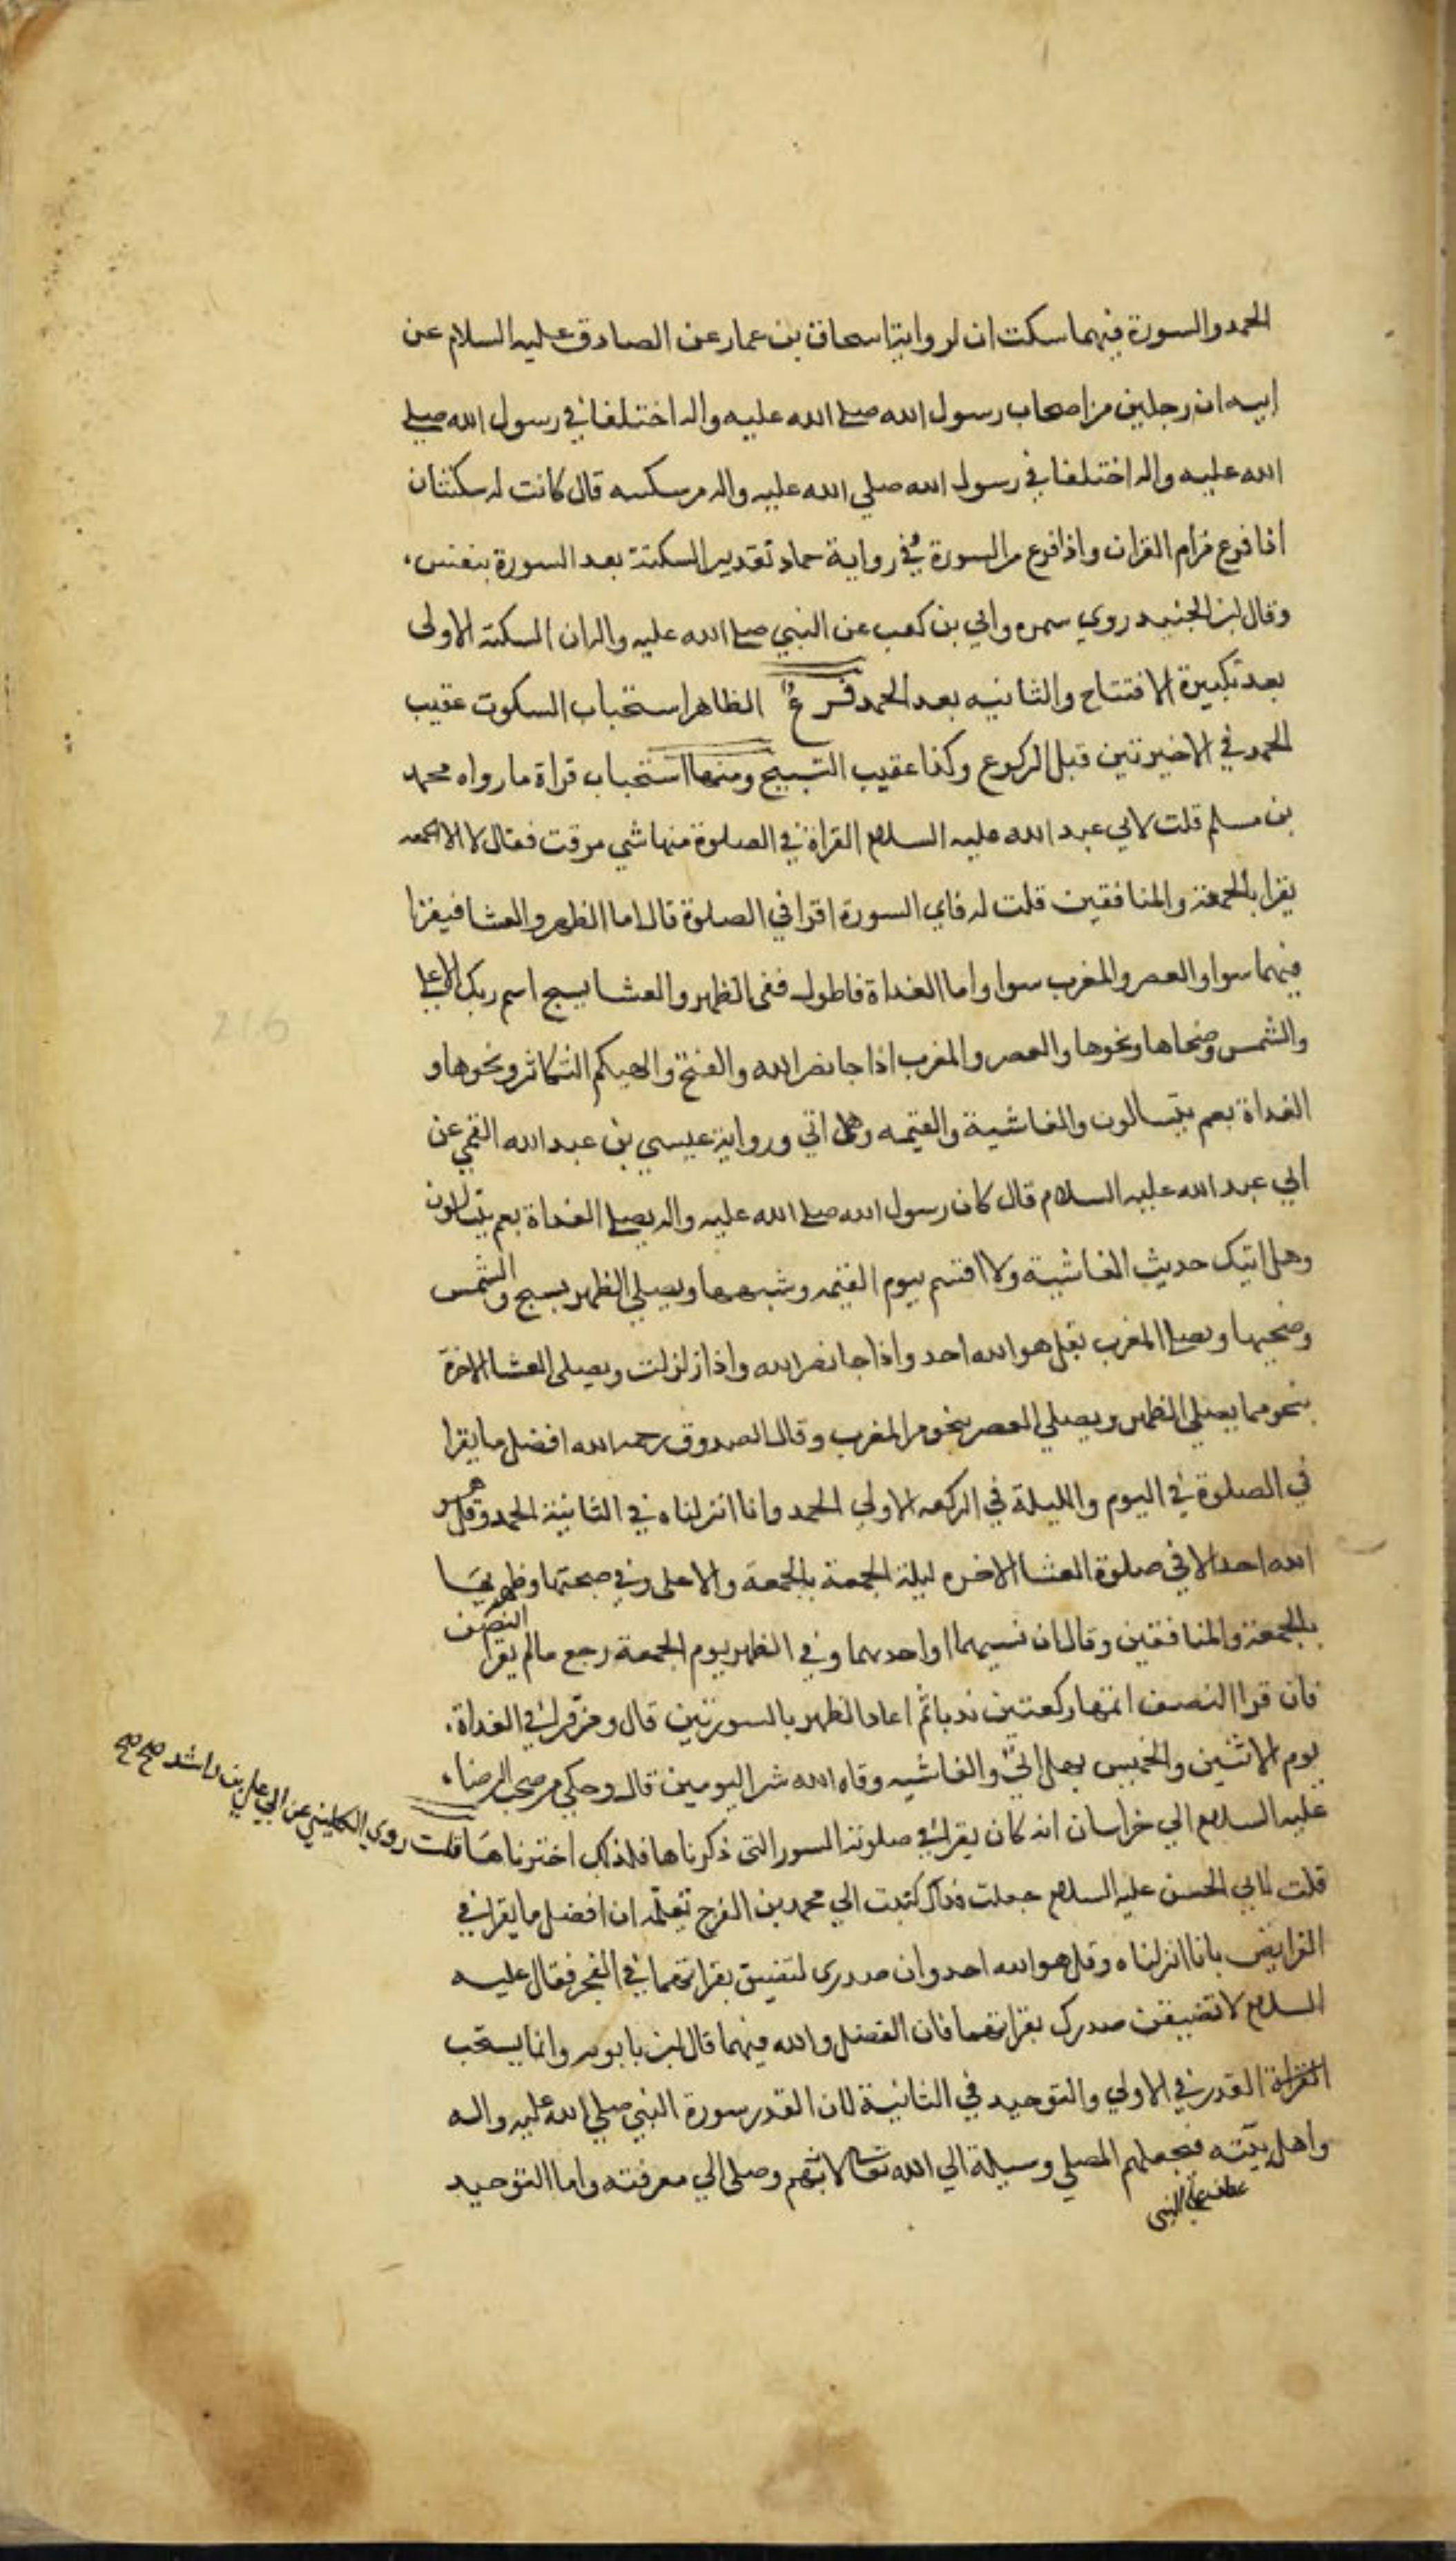 الحمد والسورة فيهما سكتتان لرواية اسحاق بن عمار عن الصادق عليه السلام عن
ابيه ان رجلين من اصحاب رسول الله صلى الله عليه واله اختلفا في رسول الله صلى
الله عليه واله اختلفا في رسول الله صلي الله عليه واله من سكته قال كانت له سكتتان
اذا فرغ من ام القران واذا فرغ من السورة وفي رواية حماد تقدير السكتة بعد السورة بنفس
وقال ابن الجنيد روي سمره وابي بن كعب عن النبي صلى الله عليه واله ان السكتة الاولى
بعد تكبيرة الافتتاح والثانيه بعد الحمد فرع الظاهر استحباب السكوت عقيب
الحمد في الاخيرتين قبل الركوع وكذا عقيب التسبيح ومنها استحباب قراة ما رواه محمد
بن مسلم قلت لابي عبد الله عليه السلام القراة في الصلوة منها شي موقت فقال لا الا الجمعه
يقرا بالجمعة والمنافقين قلت له فاي السورة اقرا في الصلوة قال اما الظهر والعشا فيقرا
فيهما سوا والعصر والمغرب سوا واما الغداة فاطول ففي الظهر والعشا بسبح اسم ربك الاعلى
والشمس وضحاها ونحوها والعصر والمغرب اذا جا نصر الله والفتح والهيكم التكاثر ونحوها و
الغداة بعم يتسالون والغاشية والقيمه وهل اتي ورواية عيسي بن عبد الله القمي عن
ابي عبد الله عليه السلام قال كان رسول الله صلى الله عليه واله يصلي الغداة بعم يتسالون
وهل اتيك حديث الغاشية ولا اقسم بيوم القيمه وشبهها ويصلي الظهر بسبح والشمس
وضحيها ويصلي المغرب بقل هو الله احد واذا جا نصر الله واذا زلزلت ويصلى العشا الاخرة
بنحو مما يصلي الظهر ويصلي العصر بنحو من المغرب وقال الصدوق رحمه الله افضل ما يقرا
في الصلوة في اليوم والليلة في الركعه الاولي الحمد وانا انزلناه في الثانية الحمد وقل هو
الله احد الا في صلوة العشا الاخره ليلة الجمعة بالجمعة والاعلى وفي صبحتها وظهريها
بالجمعة والمنافقين وقال ان نسيهما او احدهما وفي الظهر يوم الجمعة رجع ما لم يقرا النصف
فان قرا النصف اتمها ركعتين ندبا ثم اعاد الظهر بالسورتين قال ومن قرا في الغداة
يوم الاثنين والخميس بهل اتي والغاشيه وقاه الله شر اليومين قال وحكي من صحب الرضا
عليه السلام الي خراسان انه كان يقرا في صلوته السور التي ذكرناها فلذلك اخترناها قلت روي الكليني عن ابي علي بن راشد صح صح
قلت لابي الحسن عليه السلام جعلت فداك كتبت الي محمد بن الفرج تعلمه ان افضل ما يقرا في
الفرايض بانا انزلناه وقل هو الله احد وان صدرى لتضيق بقراتهما في الفجر فقال عليه
السلام لا تضيقن صدرك بقراتهما فان الفضل والله فيهما قال ابن بابويه وانما يستحب
القراة القدر في الاولي والتوحيد في الثانية لان القدر سورة النبي صلي الله عليه واله
واهل بيته فيجعلهم المصلي وسيلة الي الله تعالى لانهم وصلى الي معرفته واما التوحيد
عطف على النبي